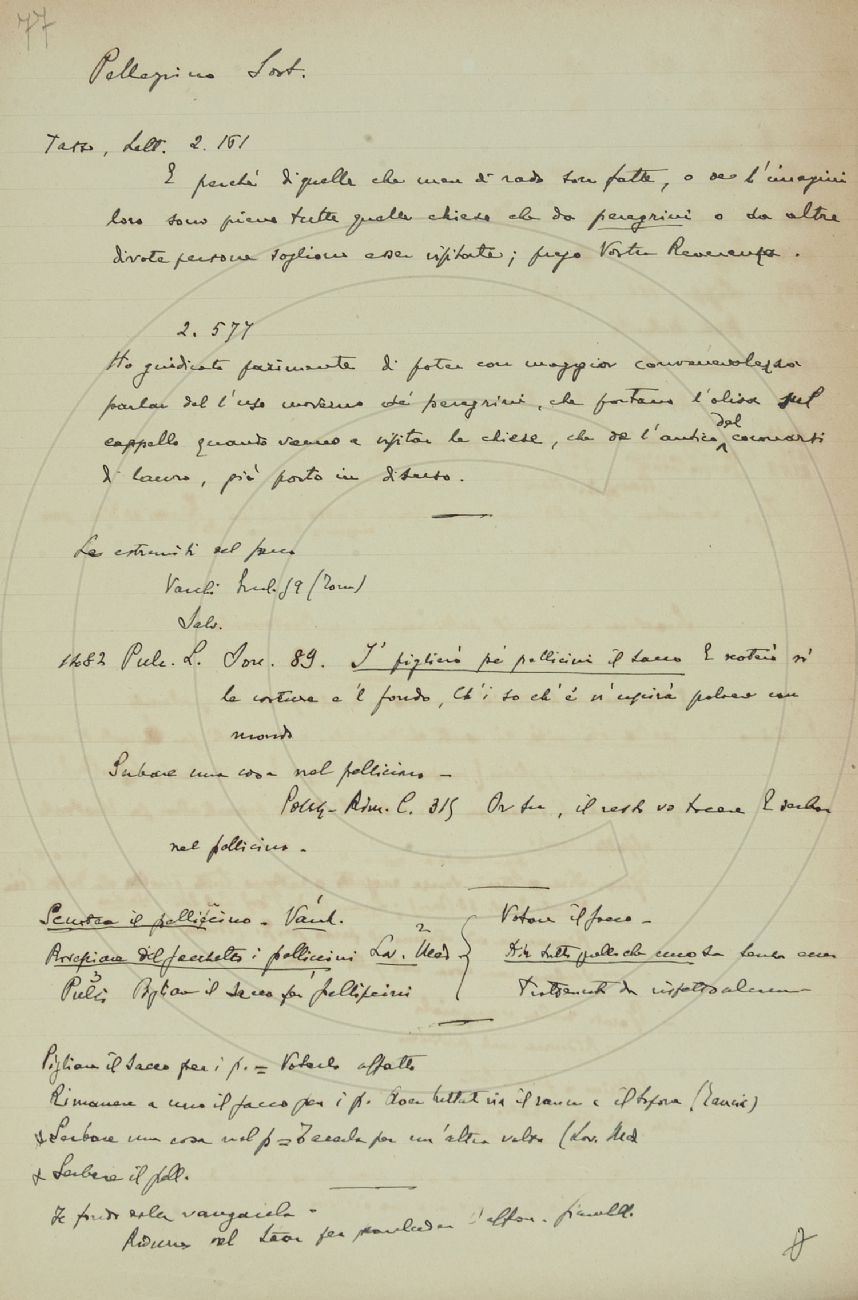 77
Pellegrino Sost.
Tasso, Lett. 2. 161
E perchè di quelle che men di rado son fatte, o de l'imagini
loro sono piene tutte quelle chiese che da peregrini o da altre
divote persone sogliono esser visitate; prego Vostra Reverenza.
2. 577
Ho giudicato parimente di poter con maggior convenevolezza
parlar del l'uso moderno de' peregrini, che portano l'oliva sul
cappello quando vanno a visitar le chiese, che de l'antico del coronarsi
di lauro, già posto in disuso.
Le estremità del sacco
Varchi Ercol. 59
Salv.
1482 Pulc. L. Son. 89. I' piglierò pe' pellicini il sacco E scoterò sì
le costure e 'l fondo, Ch'i so ch'e' n'uscirà polvere con
mondo
Serbare una cosa nel pellicino -
Rim. C. 315 Or su, il resto vo tacere E serbar
nel pellicino -
Scuotere il pellicino - Varch.
il sacchetto i pellicini Lor. Med
2
3
Pulci Pigliare il sacco pe' pellicini
Votare il sacco -
Dir tutto quello che uno sa senza esser
da rispetto alcuno -
Pigliare il sacco per i p. = Votarlo affatto
Rimanere a uno il sacco per i p.
Serbare una cosa nel p = per un'altra volta (Lor. Med
Serbare il pell.
Il fondo della vangaiola -